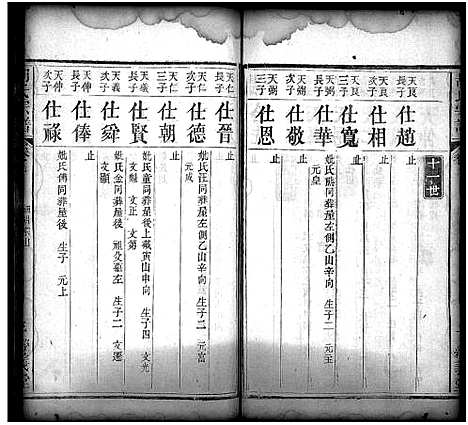 十一世
天良長子 仕超 止
天良次子 仕相 止
天良三子 仕寬 止
天弼長子 仕華 妣氏熊同葬屋左側乙山辛向 生子二 元至 元皇
天弼次子 仕敬 止
天弼三子 仕恩 止
天仁長子 仕晉 止
天仁次子 仕德 妣氏汪同葬屋左側乙山辛向 生子二 元富 元成
天仁三子 仕朝 止
天義長子 仕賢 妣氏童同葬屋後上嶺寅山申向 生子四 文光 文燦 文正 文第
天義次子 仕舜 妣氏金同葬屋後 祖父墓左 生子二 文選 文顯
天伸長子 仕俸 止
天伸次子 仕祿 妣氏傅同葬屋後 生子 元上